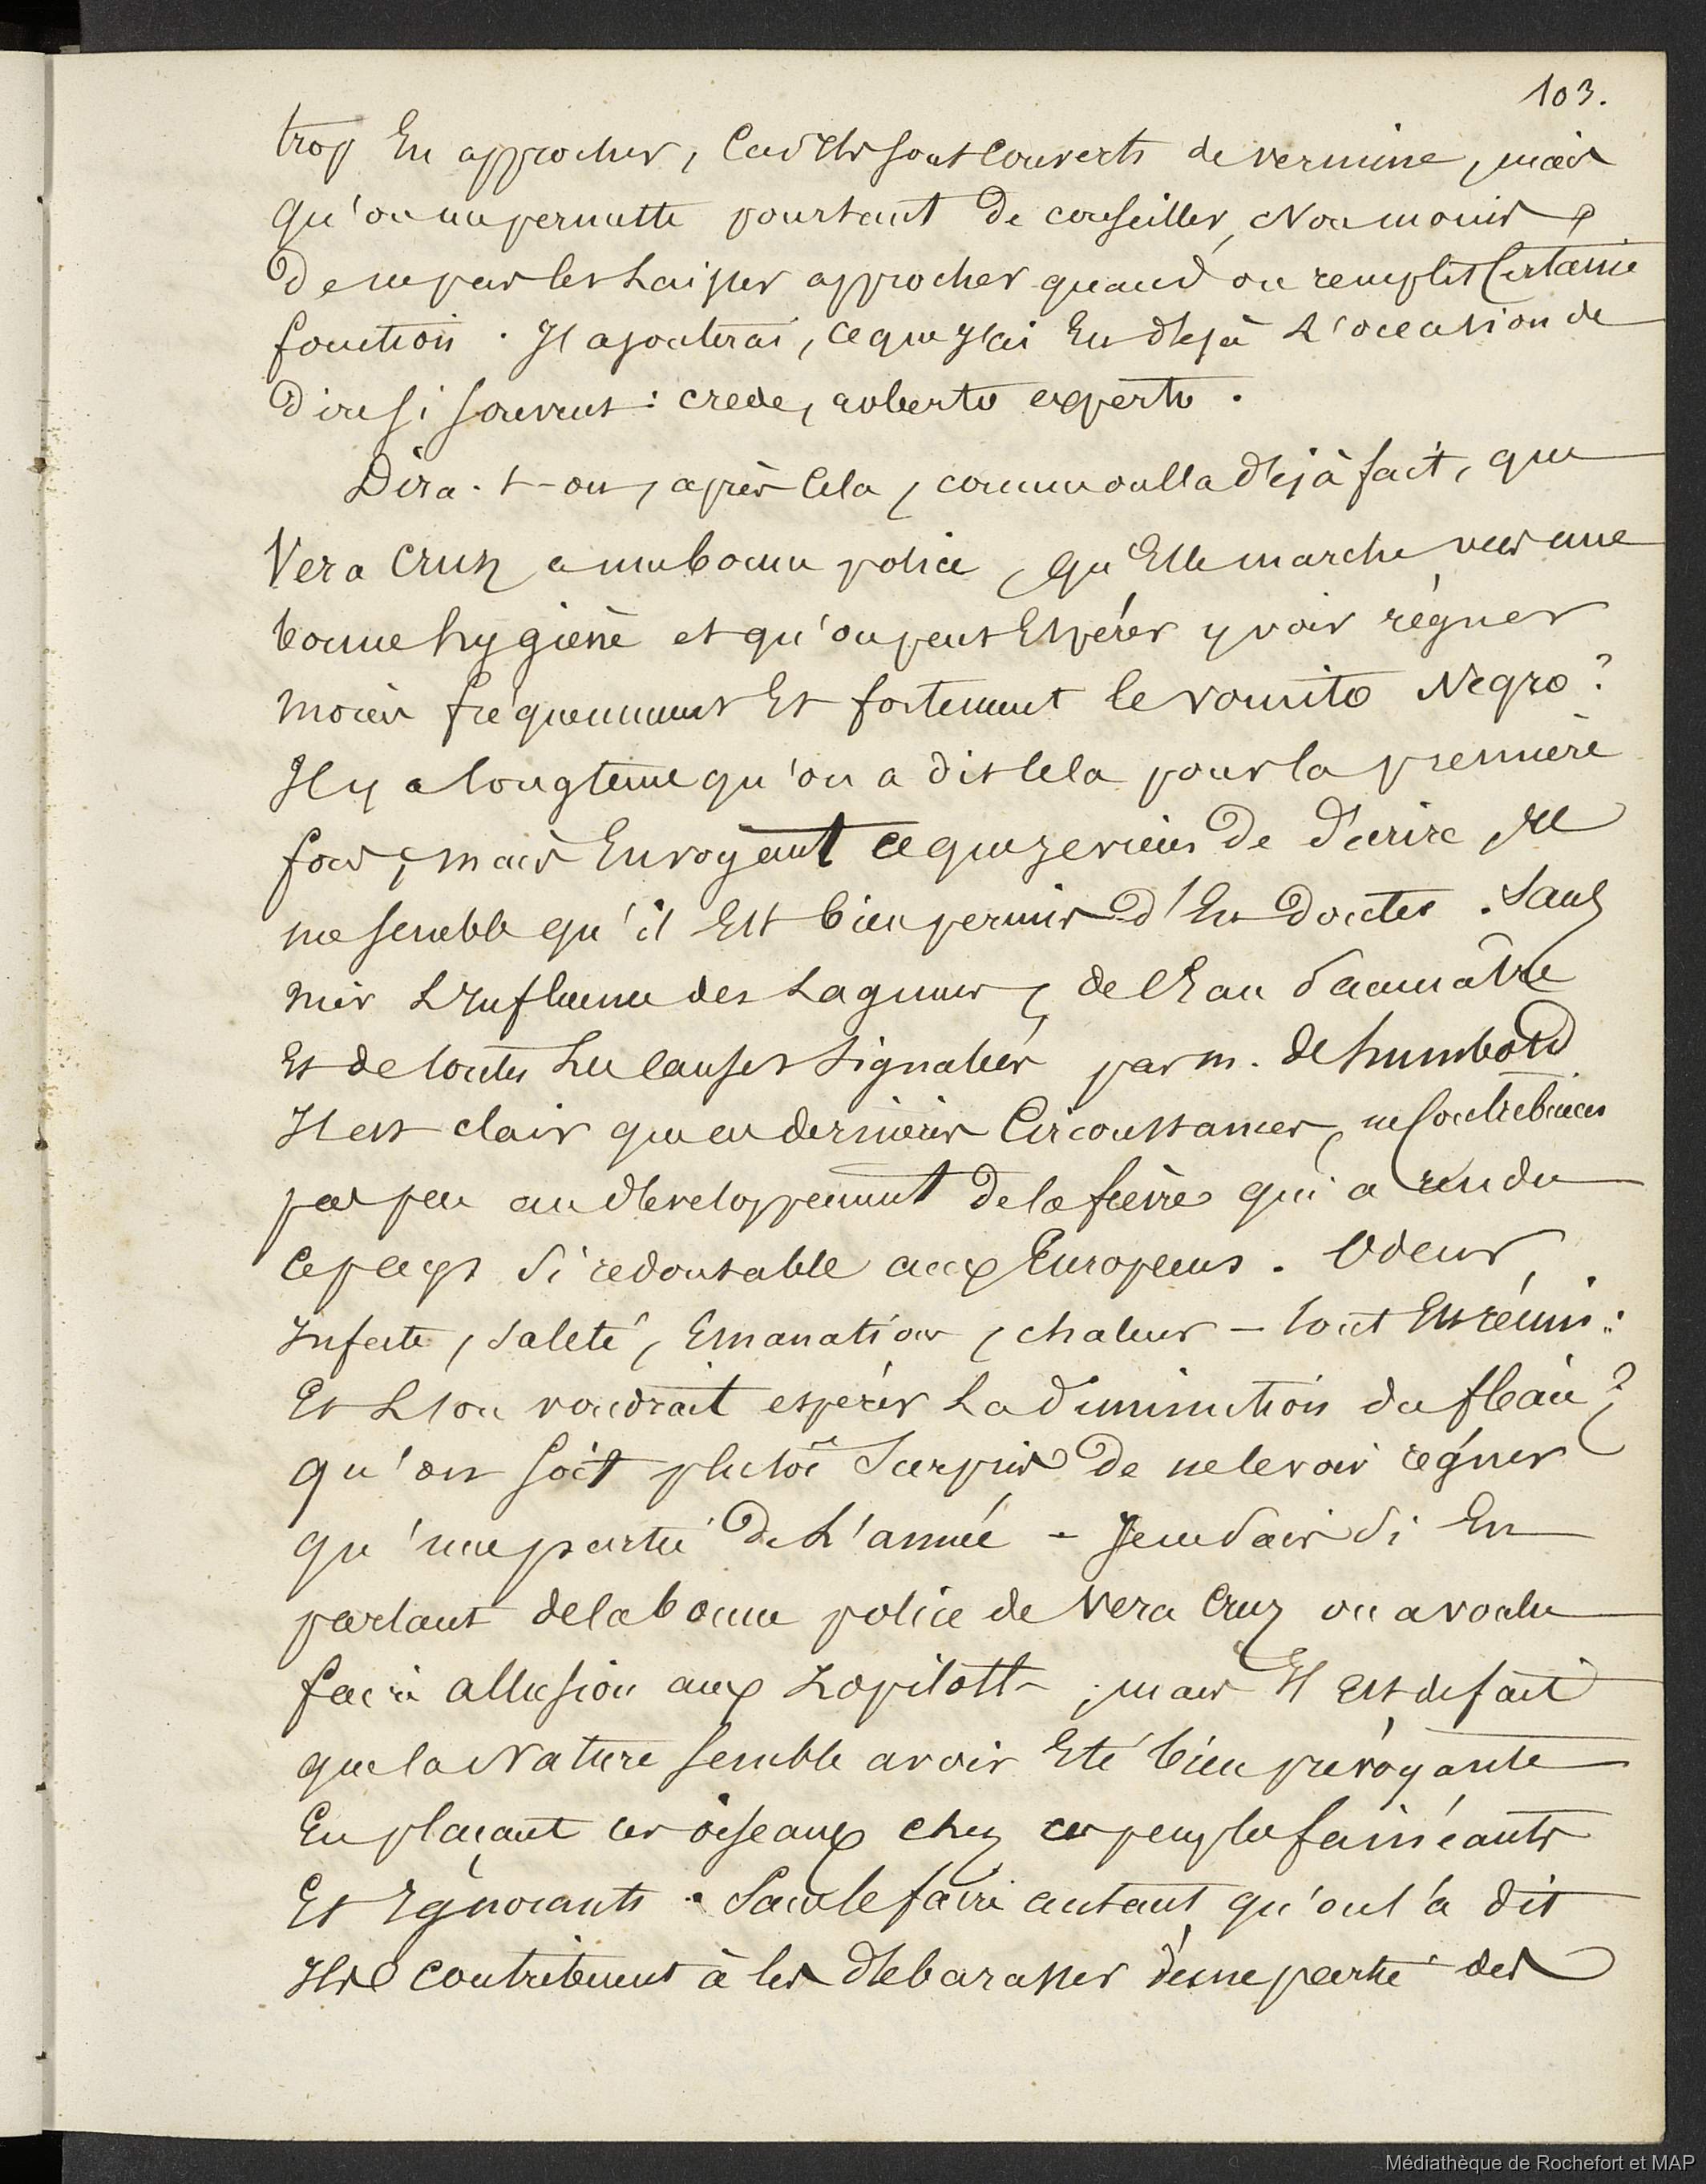 103.
trop En approcher, Car Ils sont Couverts de vermine, mais
qu'on me permette pourtant de conseiller, Non moins,
de ne pas les Laisser approcher quand on remplit Certaine
fonction. J'ajouterai, ce que J'ai Eu déjà L'occasion de
dire si souvent: crede, roberto experto.
Dira-t-on, après Cela, comme on l'a déjà fait, que
Vera Cruz a une bonne police, qu'Elle marche vers une
bonne hygiène et qu'on peut Espérer y voir régner
moins fréquemment Et fortement le vomito Negro?
Il y a longtems qu'on a dit Cela pour la première
fois; mais En voyant ce que je viens de d'écrire Il
me semble qu'il Est bien permis d'En douter. Sans
nier L'Influence des Lagunes, de l'Eau Saumâtre
Et de toutes Les Causes Signalées par m. de humbold
Il est clair que ces dernières Circonstances, ne Contribuent
pas peu au développement de la fièvre qui a rendu
Ce pays Si redoutable aux Européens. Odeur
Infecte, Saleté, Emanation, chaleur - tout Est réuni:
Et L'on voudrait espérer La diminution du fléau?
qu'on soit plutôt Surpris de ne le voir régner
qu'une partie de L'année - Je ne Sais Si En
parlant de la bonne police de Vera Cruz on a voulu
faire allusion aux Zopilotts; mais Il Est de fait
que la Nature semble avoir Eté bien prévoyante
En plaçant ces oiseaux chez ces peuples fainéants
Et Ignorants. Sans le faire autant qu'on l'a dit
Ils contribuent à les débarasser d'une partie des
Médiathèque de Rochefort et MAP